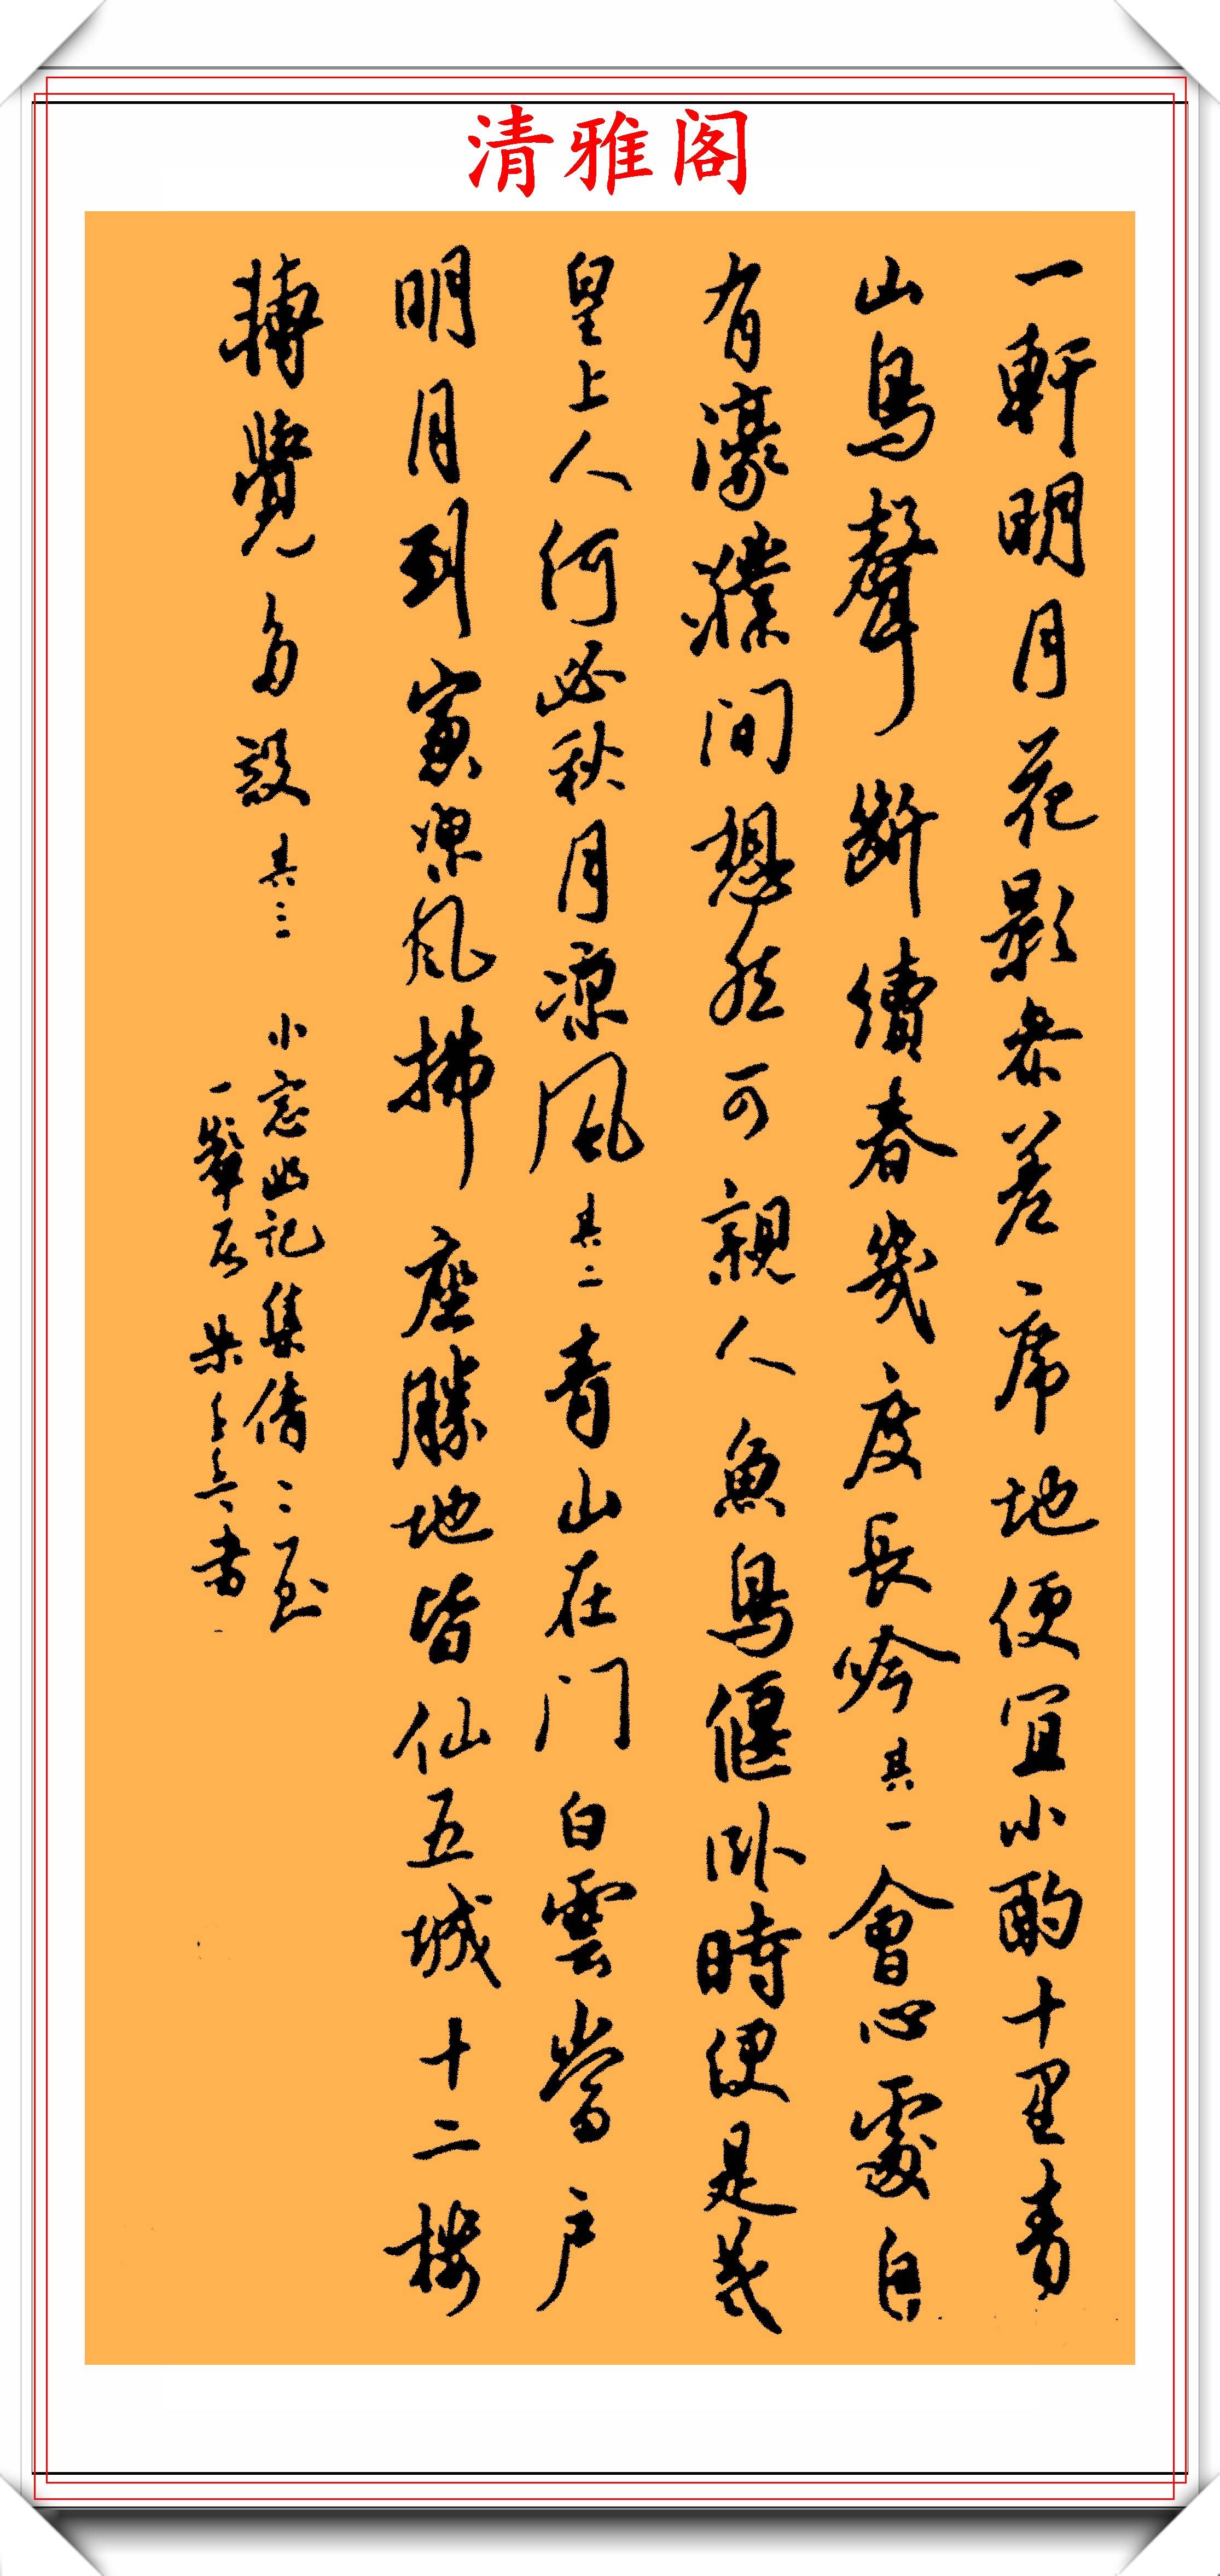 清雅阁
一軒明月花影參差席地便宜小酌十里青
山鳥聲斷續春幾度長吟其一會心處自
有濠濮间想然可親人魚鳥偃卧時便是羲
皇上人何必秋月凉风其二青山在门白雲當户
明月到窗凉风拂座勝地皆仙五城十二樓
轉覺多設其三
小窓幽记集倩二至
一犂居朱書